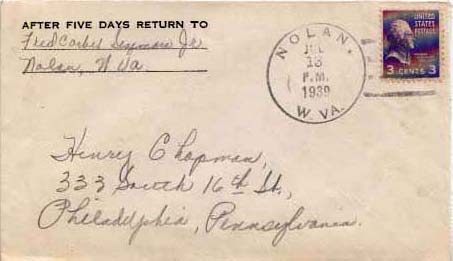 AFTER FIVE DAYS RETURN TO
Fred Seyman Jr
Nolan, W Va
NOLAN.
JUL
13
P.M.
1939
W. VA.
UNITED
STATES
POSTAGE
3 CENTS 3
Henry Chapman,
333 South 16th St.,
Philadelphia, Pennsylvania.